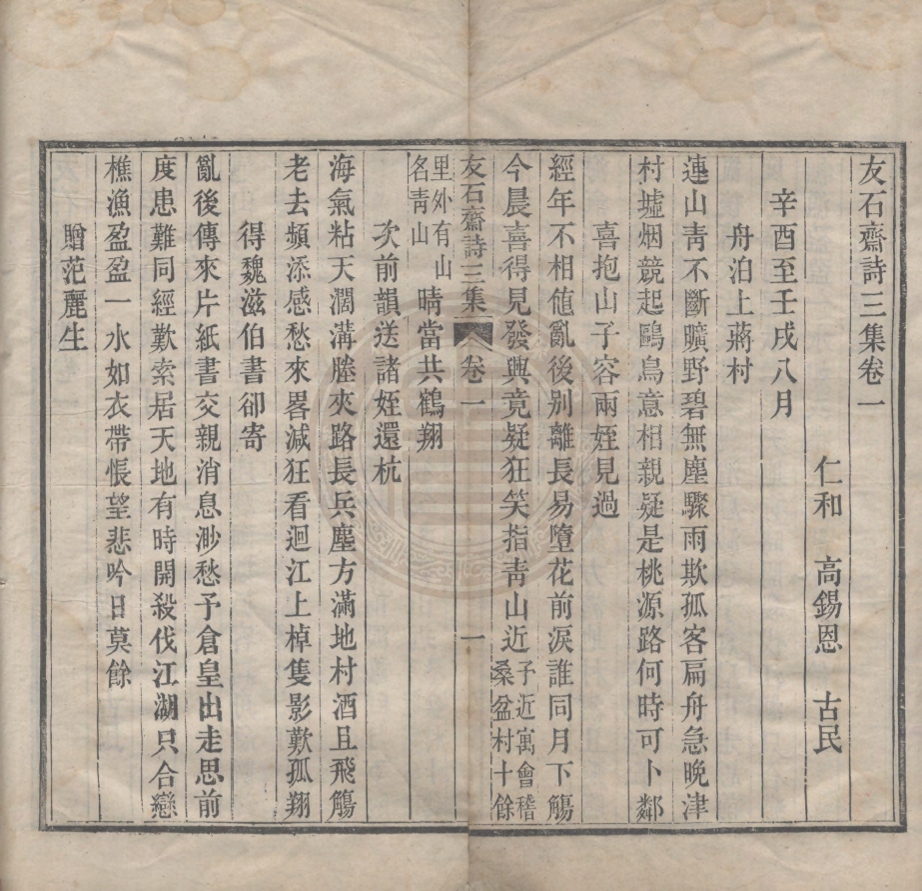 友石齋詩三集卷一
仁和　高錫恩　古民
辛酉至壬戌八月
舟泊上蔣村
連山靑不斷曠野碧無塵驟雨欺孤客扁舟急晚津
村墟烟競起鷗鳥意相親疑是桃源路何時可卜鄰
喜抱山子容兩姪見過
經年不相値亂後別離長易墮花前淚誰同月下觴
今晨喜得見發興竟疑狂笑指靑山近子近寓會稽桑盆村十餘
友石齋詩三集　卷一　一
里外有山名靑山晴當共鶴翔
次前韻送諸姪還杭
海氣粘天濶溝塍夾路長兵塵方滿地村酒且飛觴
老去頻添感愁來畧減狂看迴江上棹隻影歎孤翔
得魏滋伯書卻寄
亂後傳來片紙書交親消息渺愁予倉皇出走思前
度患難同經歎索居天地有時開殺伐江湖只合戀
樵漁盈盈一水如衣帶悵望悲吟日莫餘
贈范麗生